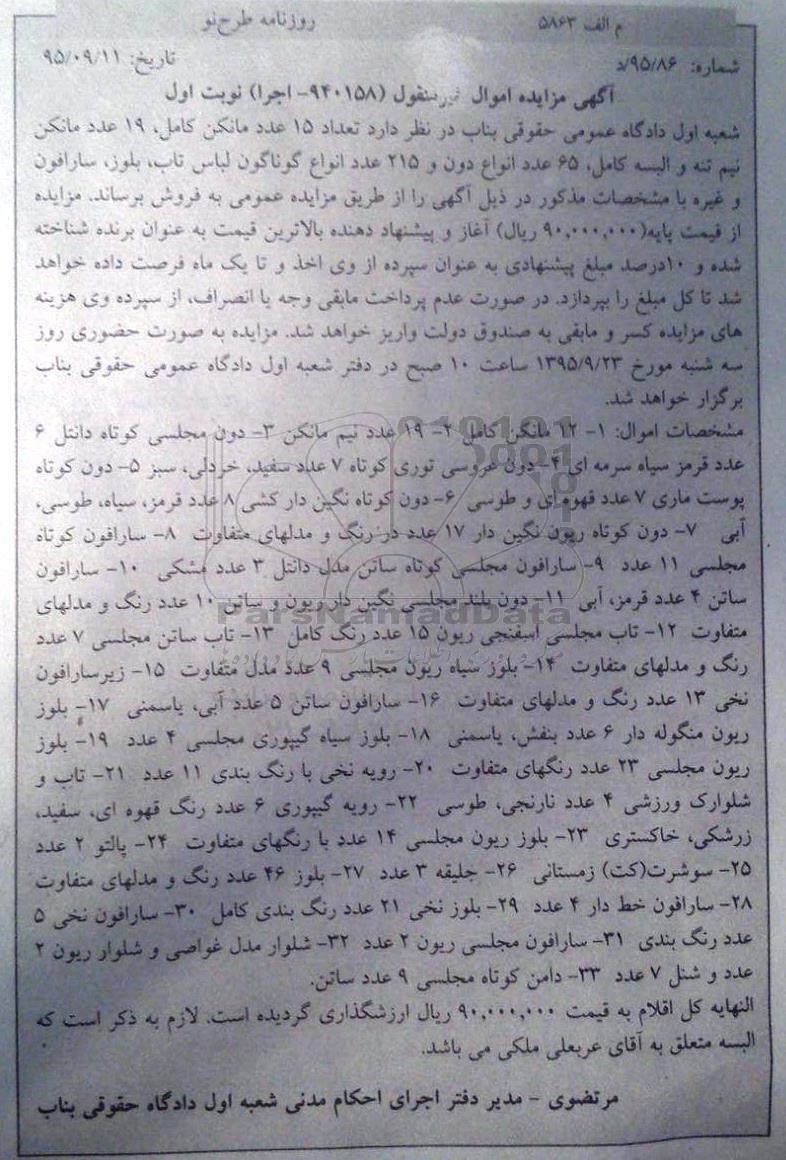 م الف ۵۸۶۳
روزنامه طرح‌نو
شماره: ۹۵/۸۶/د
تاریخ: ۹۵/۰۹/۱۱
آگهی مزایده اموال (۹۴۰۱۵۸- اجرا) نوبت اول
شعبه اول دادگاه عمومی حقوقی بناب در نظر دارد تعداد ۱۵ عدد مانکن کامل، ۱۹ عدد مانکن
نیم تنه و البسه کامل، ۶۵ عدد انواع دون و ۲۱۵ عدد انواع گوناگون لباس تاب، بلوز، سارافون
و غیره با مشخصات مذکور در ذیل آگهی را از طریق مزایده عمومی به فروش برساند. مزایده
از قیمت پایه(۹۰,۰۰۰,۰۰۰ ریال) آغاز و پیشنهاد دهنده بالاترین قیمت به عنوان برنده شناخته
شده و ۱۰درصد مبلغ پیشنهادی به عنوان سپرده از وی اخذ و تا یک ماه فرصت داده خواهد
شد تا کل مبلغ را بپردازد. در صورت عدم پرداخت مابقی وجه یا انصراف، از سپرده وی هزینه
های مزایده کسر و مابقی به صندوق دولت واریز خواهد شد. مزایده به صورت حضوری روز
سه شنبه مورخ ۱۳۹۵/۹/۲۳ ساعت ۱۰ صبح در دفتر شعبه اول دادگاه عمومی حقوقی بناب
برگزار خواهد شد.
مشخصات اموال: ۱- ۱۲ مانکن کامل ۲- ۱۹ عدد نیم مانکن ۳- دون مجلسی کوتاه دانتل ۶
عدد قرمز سیاه سرمه ای ۴- دون عروسی توری کوتاه ۷ عدد سفید، خردلی، سبز ۵- دون کوتاه
پوست ماری ۷ عدد قهوه‌ای و طوسی ۶- دون کوتاه نگین دار کشی ۸ عدد قرمز، سیاه، طوسی،
آبی ۷- دون کوتاه ریون نگین دار ۱۷ عدد در رنگ و مدلهای متفاوت ۸- سارافون کوتاه
مجلسی ۱۱ عدد ۹- سارافون مجلسی کوتاه ساتن مدل دانتل ۳ عدد مشکی ۱۰- سارافون
ساتن ۴ عدد قرمز، آبی ۱۱- دون بلند مجلسی نگین دار ریون و ساتن ۱۰ عدد رنگ و مدلهای
ParsNamadData
متفاوت ۱۲- تاب مجلسی اسفنجی ریون ۱۵ عدد رنگ کامل ۱۳- تاب ساتن مجلسی ۷ عدد
رنگ و مدلهای متفاوت ۱۴- بلوز سیاه ریون مجلسی ۹ عدد مدل متفاوت ۱۵- زیرسارافون
نخی ۱۳ عدد رنگ و مدلهای متفاوت ۱۶- سارافون ساتن ۵ عدد آبی، یاسمنی ۱۷- بلوز
ریون منگوله دار ۶ عدد بنفش، یاسمنی ۱۸- بلوز سیاه گیپوری مجلسی ۴ عدد ۱۹- بلوز
ریون مجلسی ۲۳ عدد رنگهای متفاوت ۲۰- رویه نخی با رنگ بندی ۱۱ عدد ۲۱- تاب و
شلوارک ورزشی ۴ عدد نارنجی، طوسی ۲۲- رویه گیپوری ۶ عدد رنگ قهوه ای، سفید،
زرشکی، خاکستری ۲۳- بلوز ریون مجلسی ۱۴ عدد با رنگهای متفاوت ۲۴- پالتو ۲ عدد
۲۵- سوشرت(کت) زمستانی ۲۶- جلیقه ۳ عدد ۲۷- بلوز ۴۶ عدد رنگ و مدلهای متفاوت
۲۸- سارافون خط دار ۴ عدد ۲۹- بلوز نخی ۲۱ عدد رنگ بندی کامل ۳۰- سارافون نخی ۵
عدد رنگ بندی ۳۱- سارافون مجلسی ریون ۲ عدد ۳۲- شلوار مدل غواصی و شلوار ریون ۲
عدد و شنل ۷ عدد ۳۳- دامن کوتاه مجلسی ۹ عدد ساتن.
النهایه کل اقلام به قیمت ۹۰,۰۰۰,۰۰۰ ریال ارزشگذاری گردیده است. لازم به ذکر است که
البسه متعلق به آقای عربعلی ملکی می باشد.
مرتضوی - مدیر دفتر اجرای احکام مدنی شعبه اول دادگاه حقوقی بناب